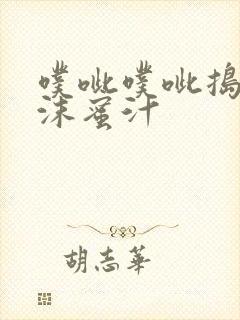 噗呲噗呲搗
沫蜜汁
胡志華